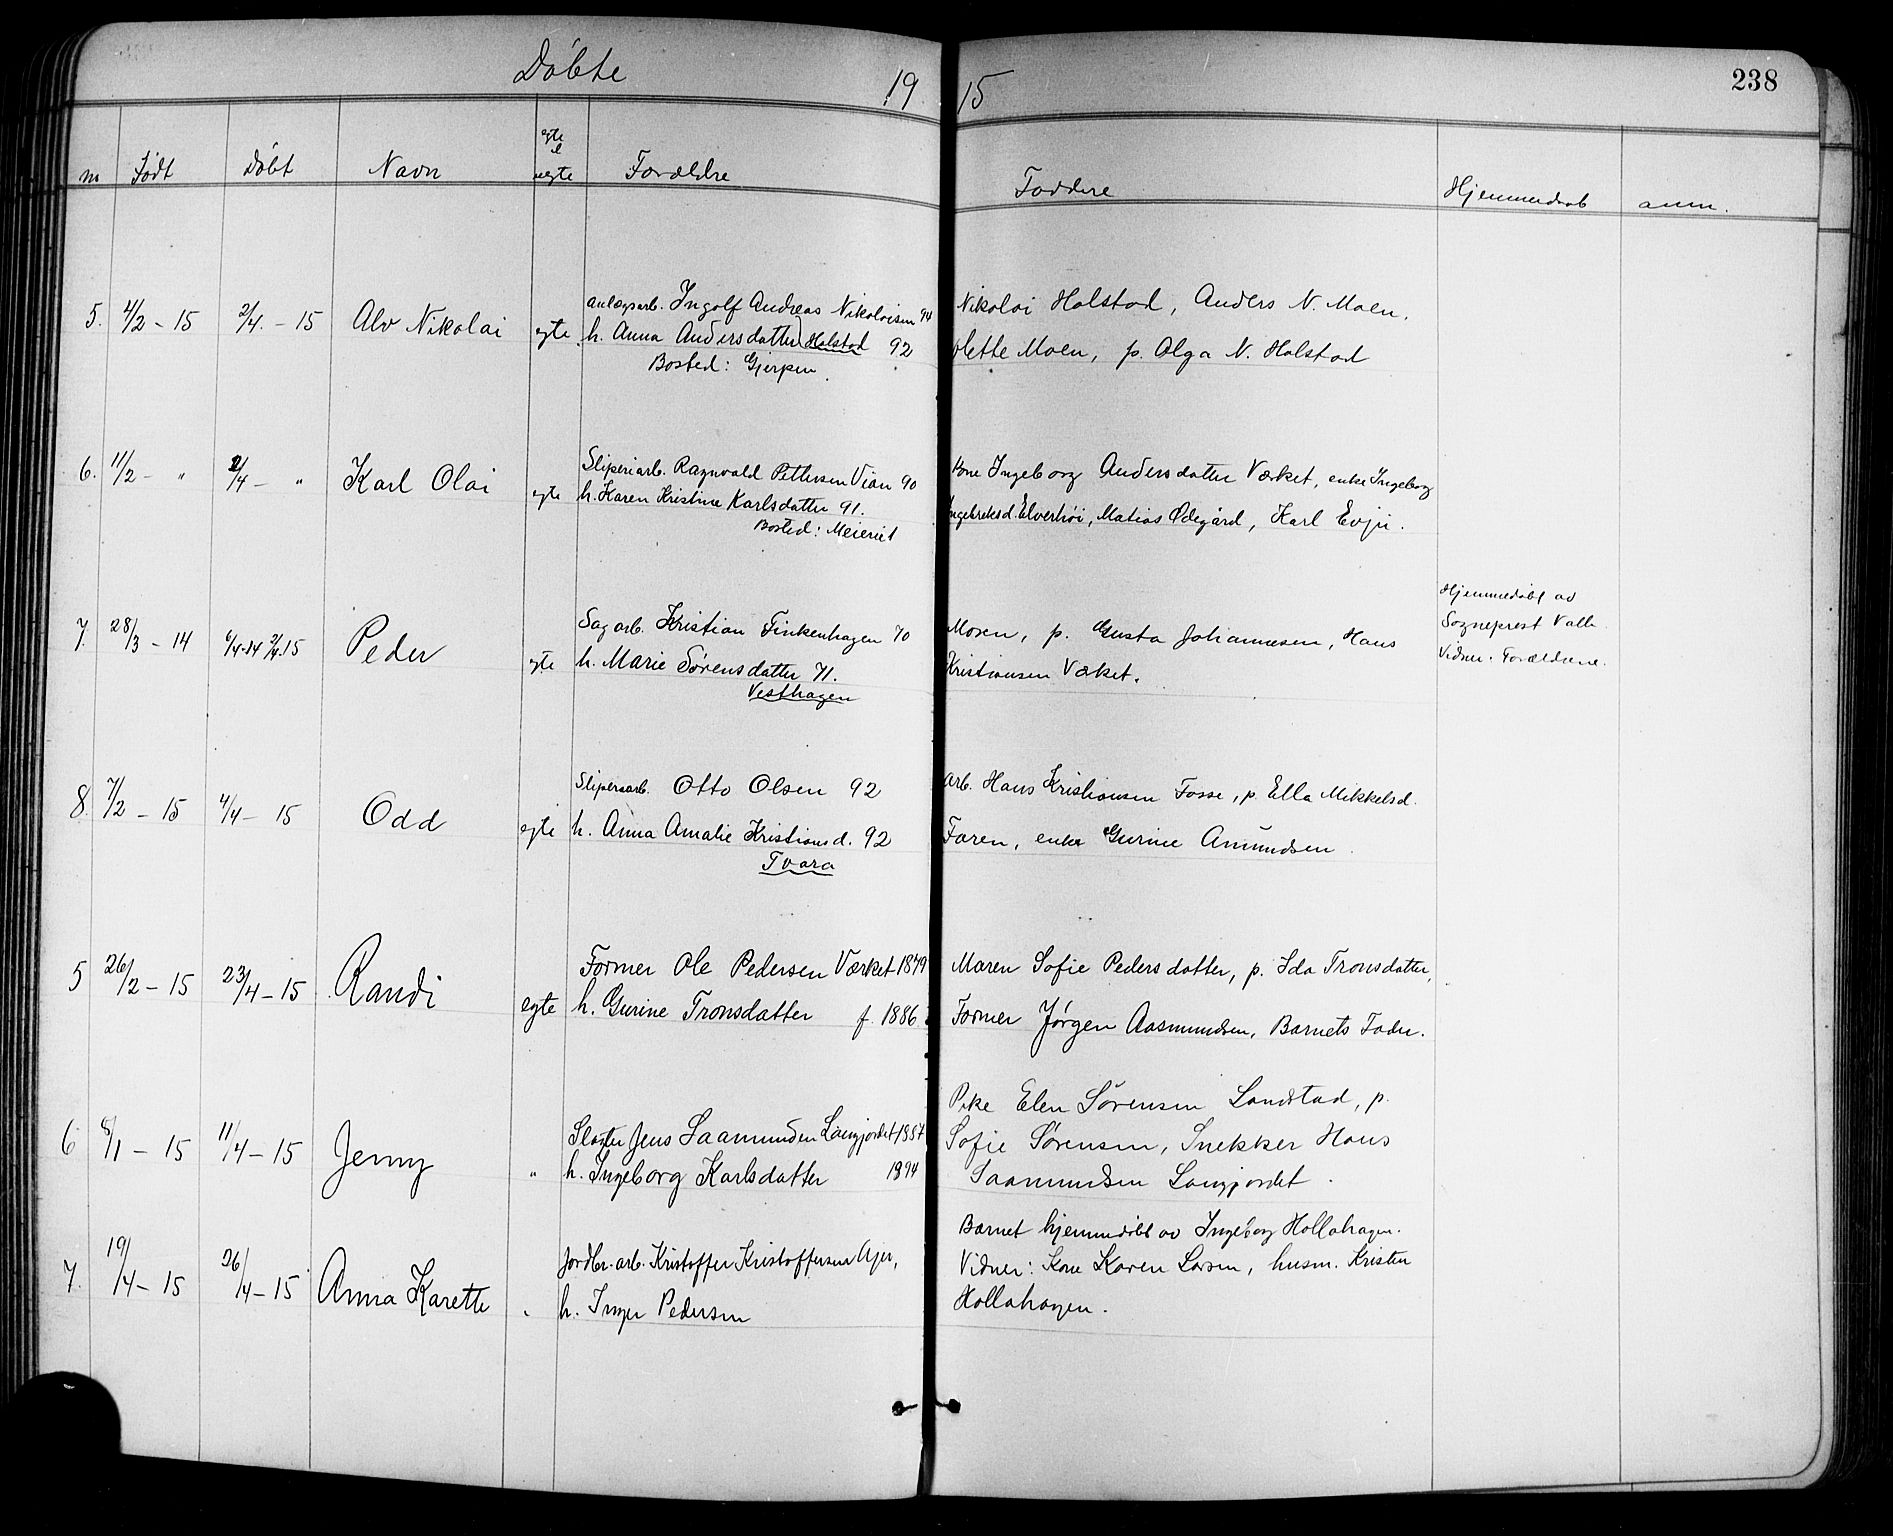 Døbte 19 15 238
nr Født Døbt Navn egte el uegte Forældre Faddere Hjemmedaab anm.
5. 4/2 - 15 2/4. - 15 Alv Nikolai egte anlægsarb. Ingolf Andreas Nikolaisen 94
h. Anna Andersdatter Holstad 92
Bosted: Gjerpen.
Nikolai Holstad, Anders N. Moen,
Mette Moen, p. Olga N. Holstad
6. 11/2 - " 2/4 - " Karl Olai egte Sliperiarb. Ragnvald Pettersen Vian 90
h. Karen Kristine Karlsdatter 91.
Bosted: Meieriet
Kone Ingeborg Andersdatter Værket, enke Ingeborg
Ingebreksd. Elverhøi, Matias Ødegård, Karl Evju.
7. 28/3 - 14 6/4-14 2/4.15 Peder egte Sagarb. Kristian Finkenhagen 70
h. Marie Sørensdatter 71.
Vesthagen
Moren, p. Gusta Johannesen, Hans
Kristiansen Væket.
Hjemmedøbt av
Sogneprest Valle
Vidner: Forældrene.
8. 7/2 - 15 4/4 - 15 Odd egte Sliperiarb. Otto Olsen 92
h. Anna Amalie Kristiansd. 92
Tvara
Arb. Hans Kristiansen Fosse, p. Ella Mikkelsd.
Faren, enke Gurine Amundsen.
5 26/2 - 15 23/4 - 15 Randi egte Former Ole Pedersen Værket 1879
h. Gurine Tronsdatter f. 1886
Maren Sofie Pedersdatter, p. Ida Tronsdatter,
Former Jørgen Aasmundsen, Barnets Fader.
6 8/1 - 15 11/4 - 15 Jenny " Jens Saamunden Langjordet 1887
h. Ingeborg Karlsdatter 1894
Pike Elen Sørensen Landstad, p.
Sofie Sørensen, Snekker Hans
Saamundsen Langjordet.
7. 19/4 - 15 26/4 - 15 Anna Karette " Jordbr. arb. Kristoffer Kristoffersen Ajer,
h. Inger Pedersen
Barnet hjemmedøbt av Ingeborg Hollahagen.
Vidner: Kone Karen Larsen, husm. Kristen
Hollahagen.